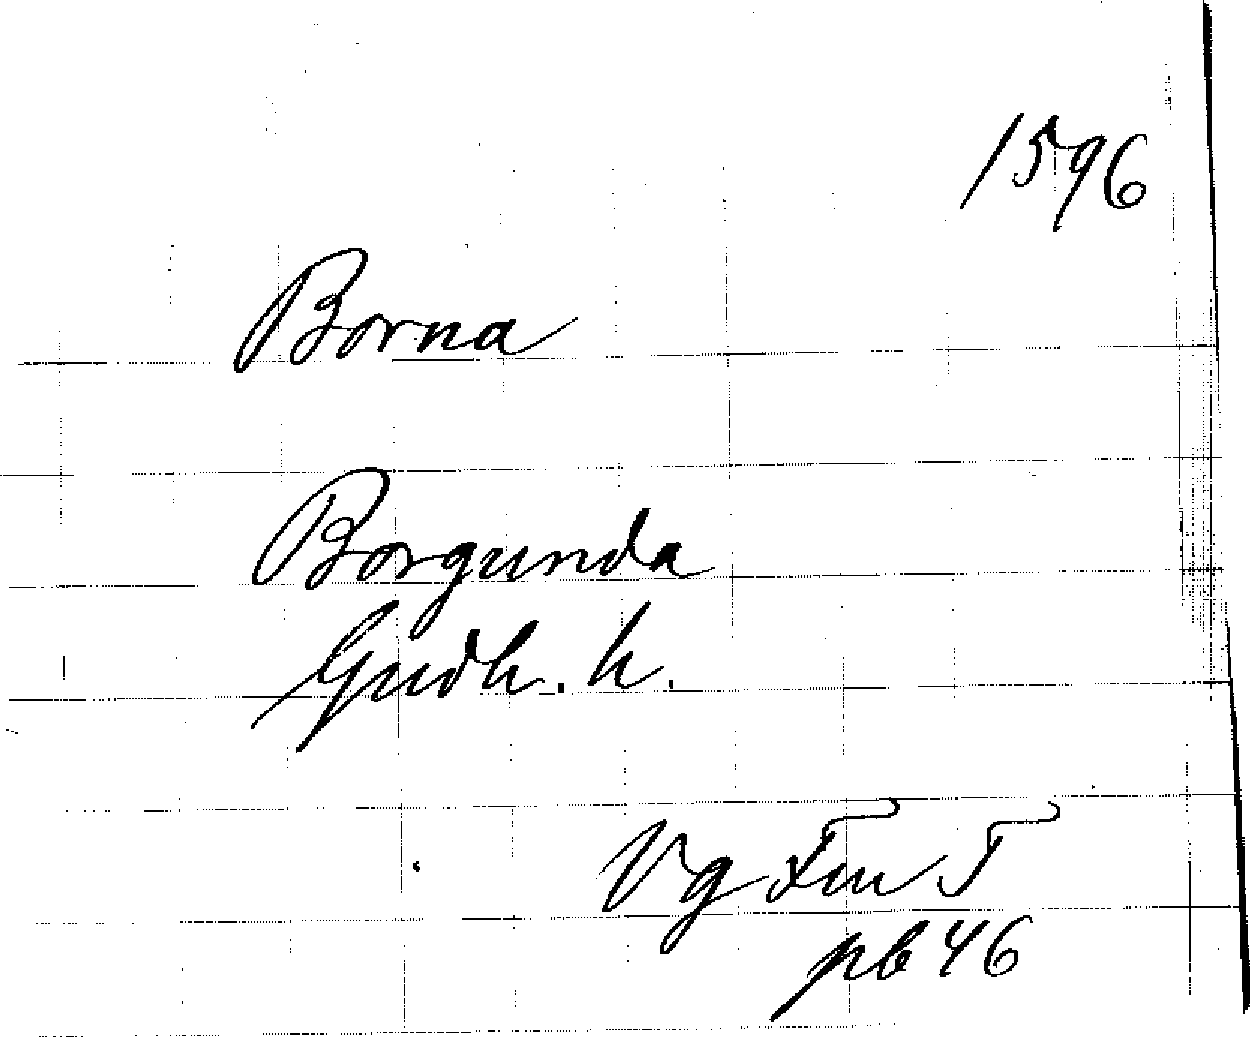 1596
Borna
Borgunda
Gudh. h.
Vg Fm T
pb 46